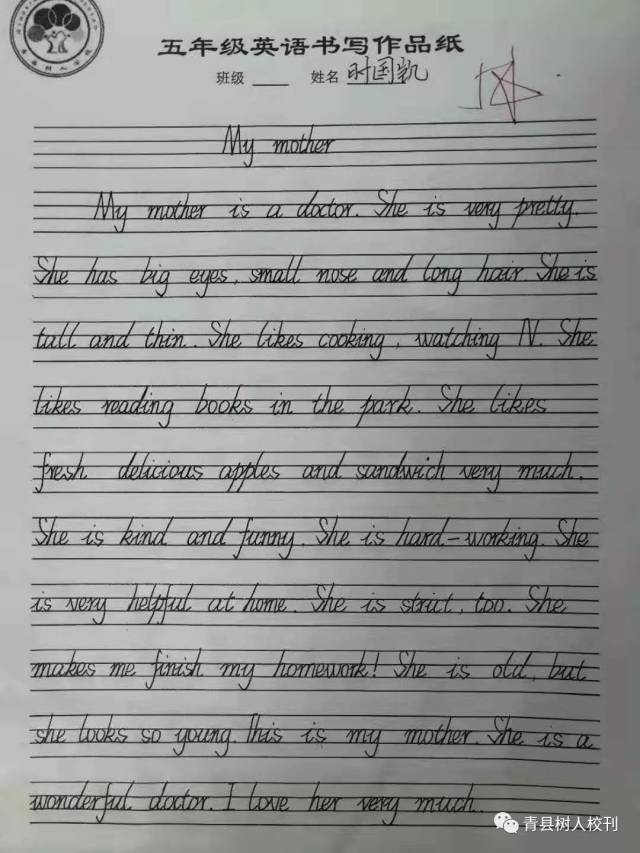 五年级英语书写作品纸
班级 姓名 时国凯
My mother
My mother is a doctor. She is very pretty.
She has big eyes, small nose and long hair. She is
tall and thin. She likes cooking, watching TV. She
likes reading books in the park. She likes
fresh delicious apples and sandwich very much.
She is kind and funny. She is hard-working. She
is very helpful at home. She is strict, too. She
makes me finish my homework! She is old, but
she looks so young. This is my mother. She is a
wonderful doctor. I love her very much.
青县树人校刊